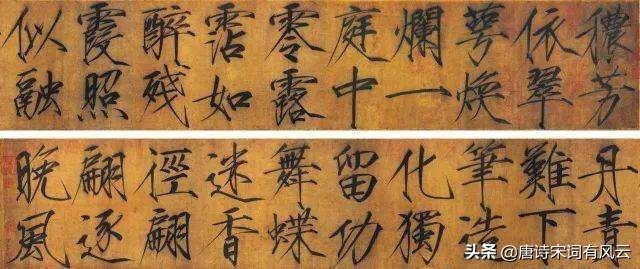 穠芳
依翠
萼煥
爛一
庭中
零露
霑如
醉殘
霞照
似融
丹青
難下
筆造
化獨
留功
舞蝶
迷香
徑翩
翩逐
晚風
头条 @唐诗宋词有风云